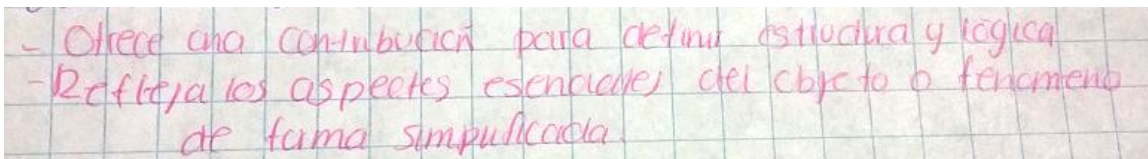 - Ofrece una contribución para definir estructura y lógica
- Refleja los aspectos esenciales del objeto o fenomeno
de forma simplificada.